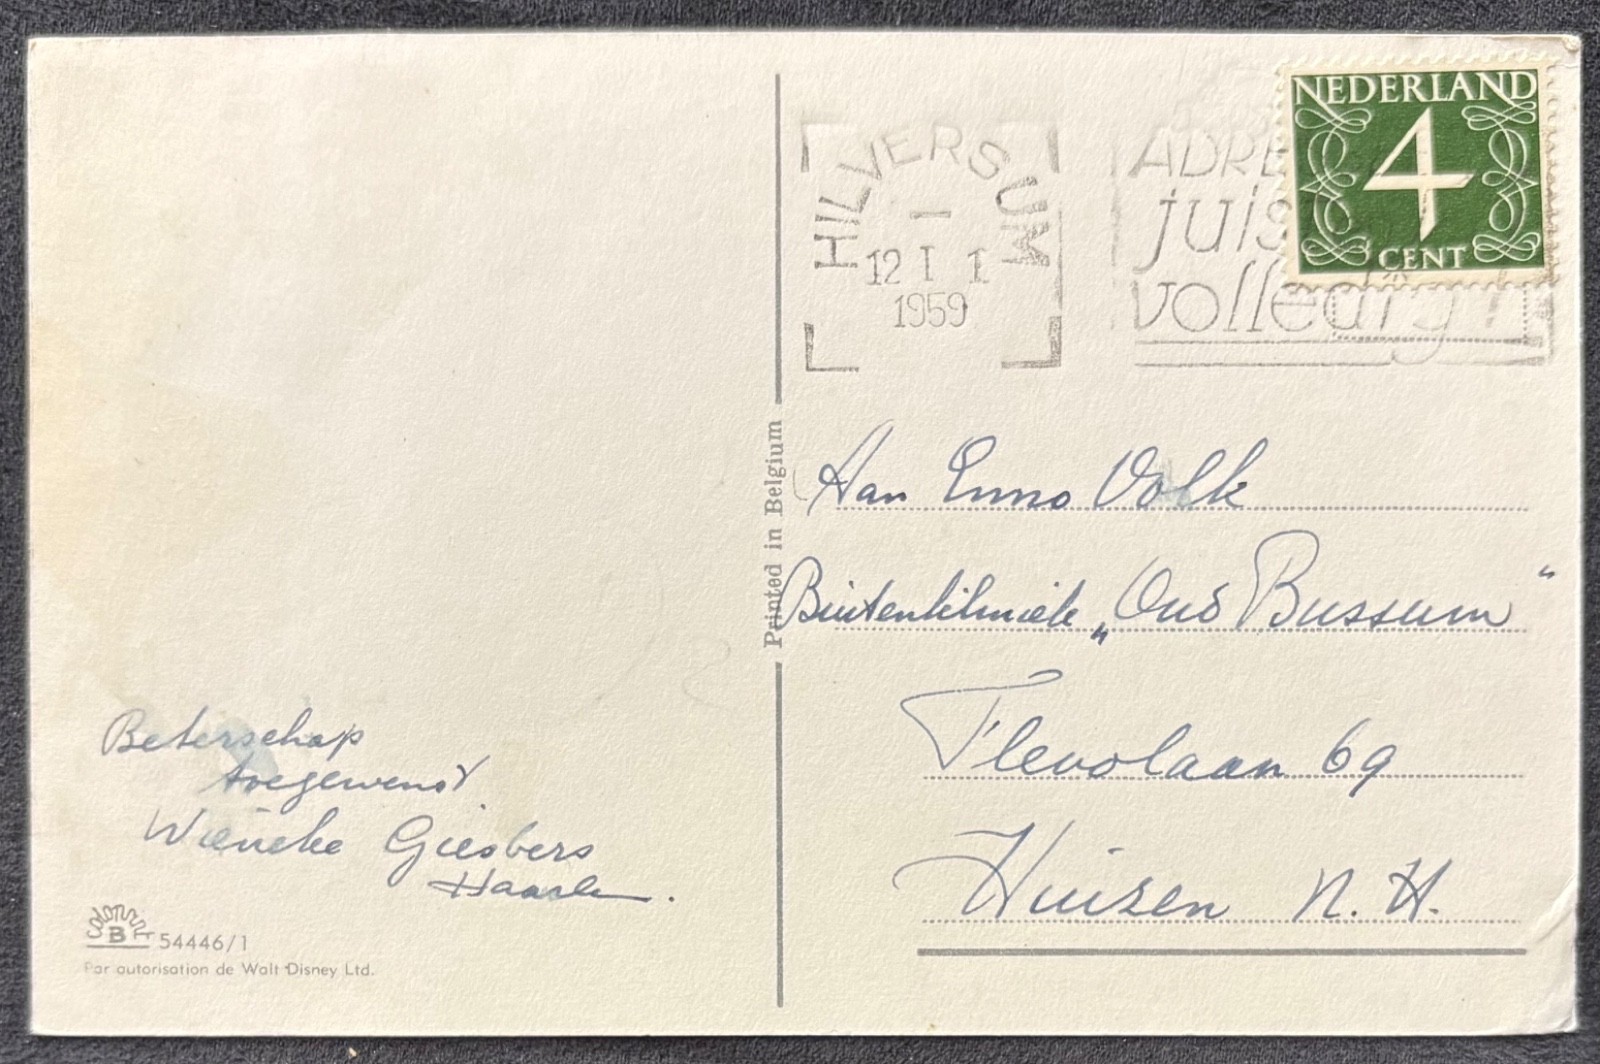 HILVERSUM
12 I 1
1959
ADRE
juis
volledig!
NEDERLAND
4
CENT
Printed in Belgium
Aan Enno Volk
Buitenkliniek „Oud Bussum“
Flevolaan 69
Huizen N.H.
Beterschap
toegewenst
Wieneke Giesbers
COLORPRINT
B 54446/1
Par autorisation de Walt Disney Ltd.